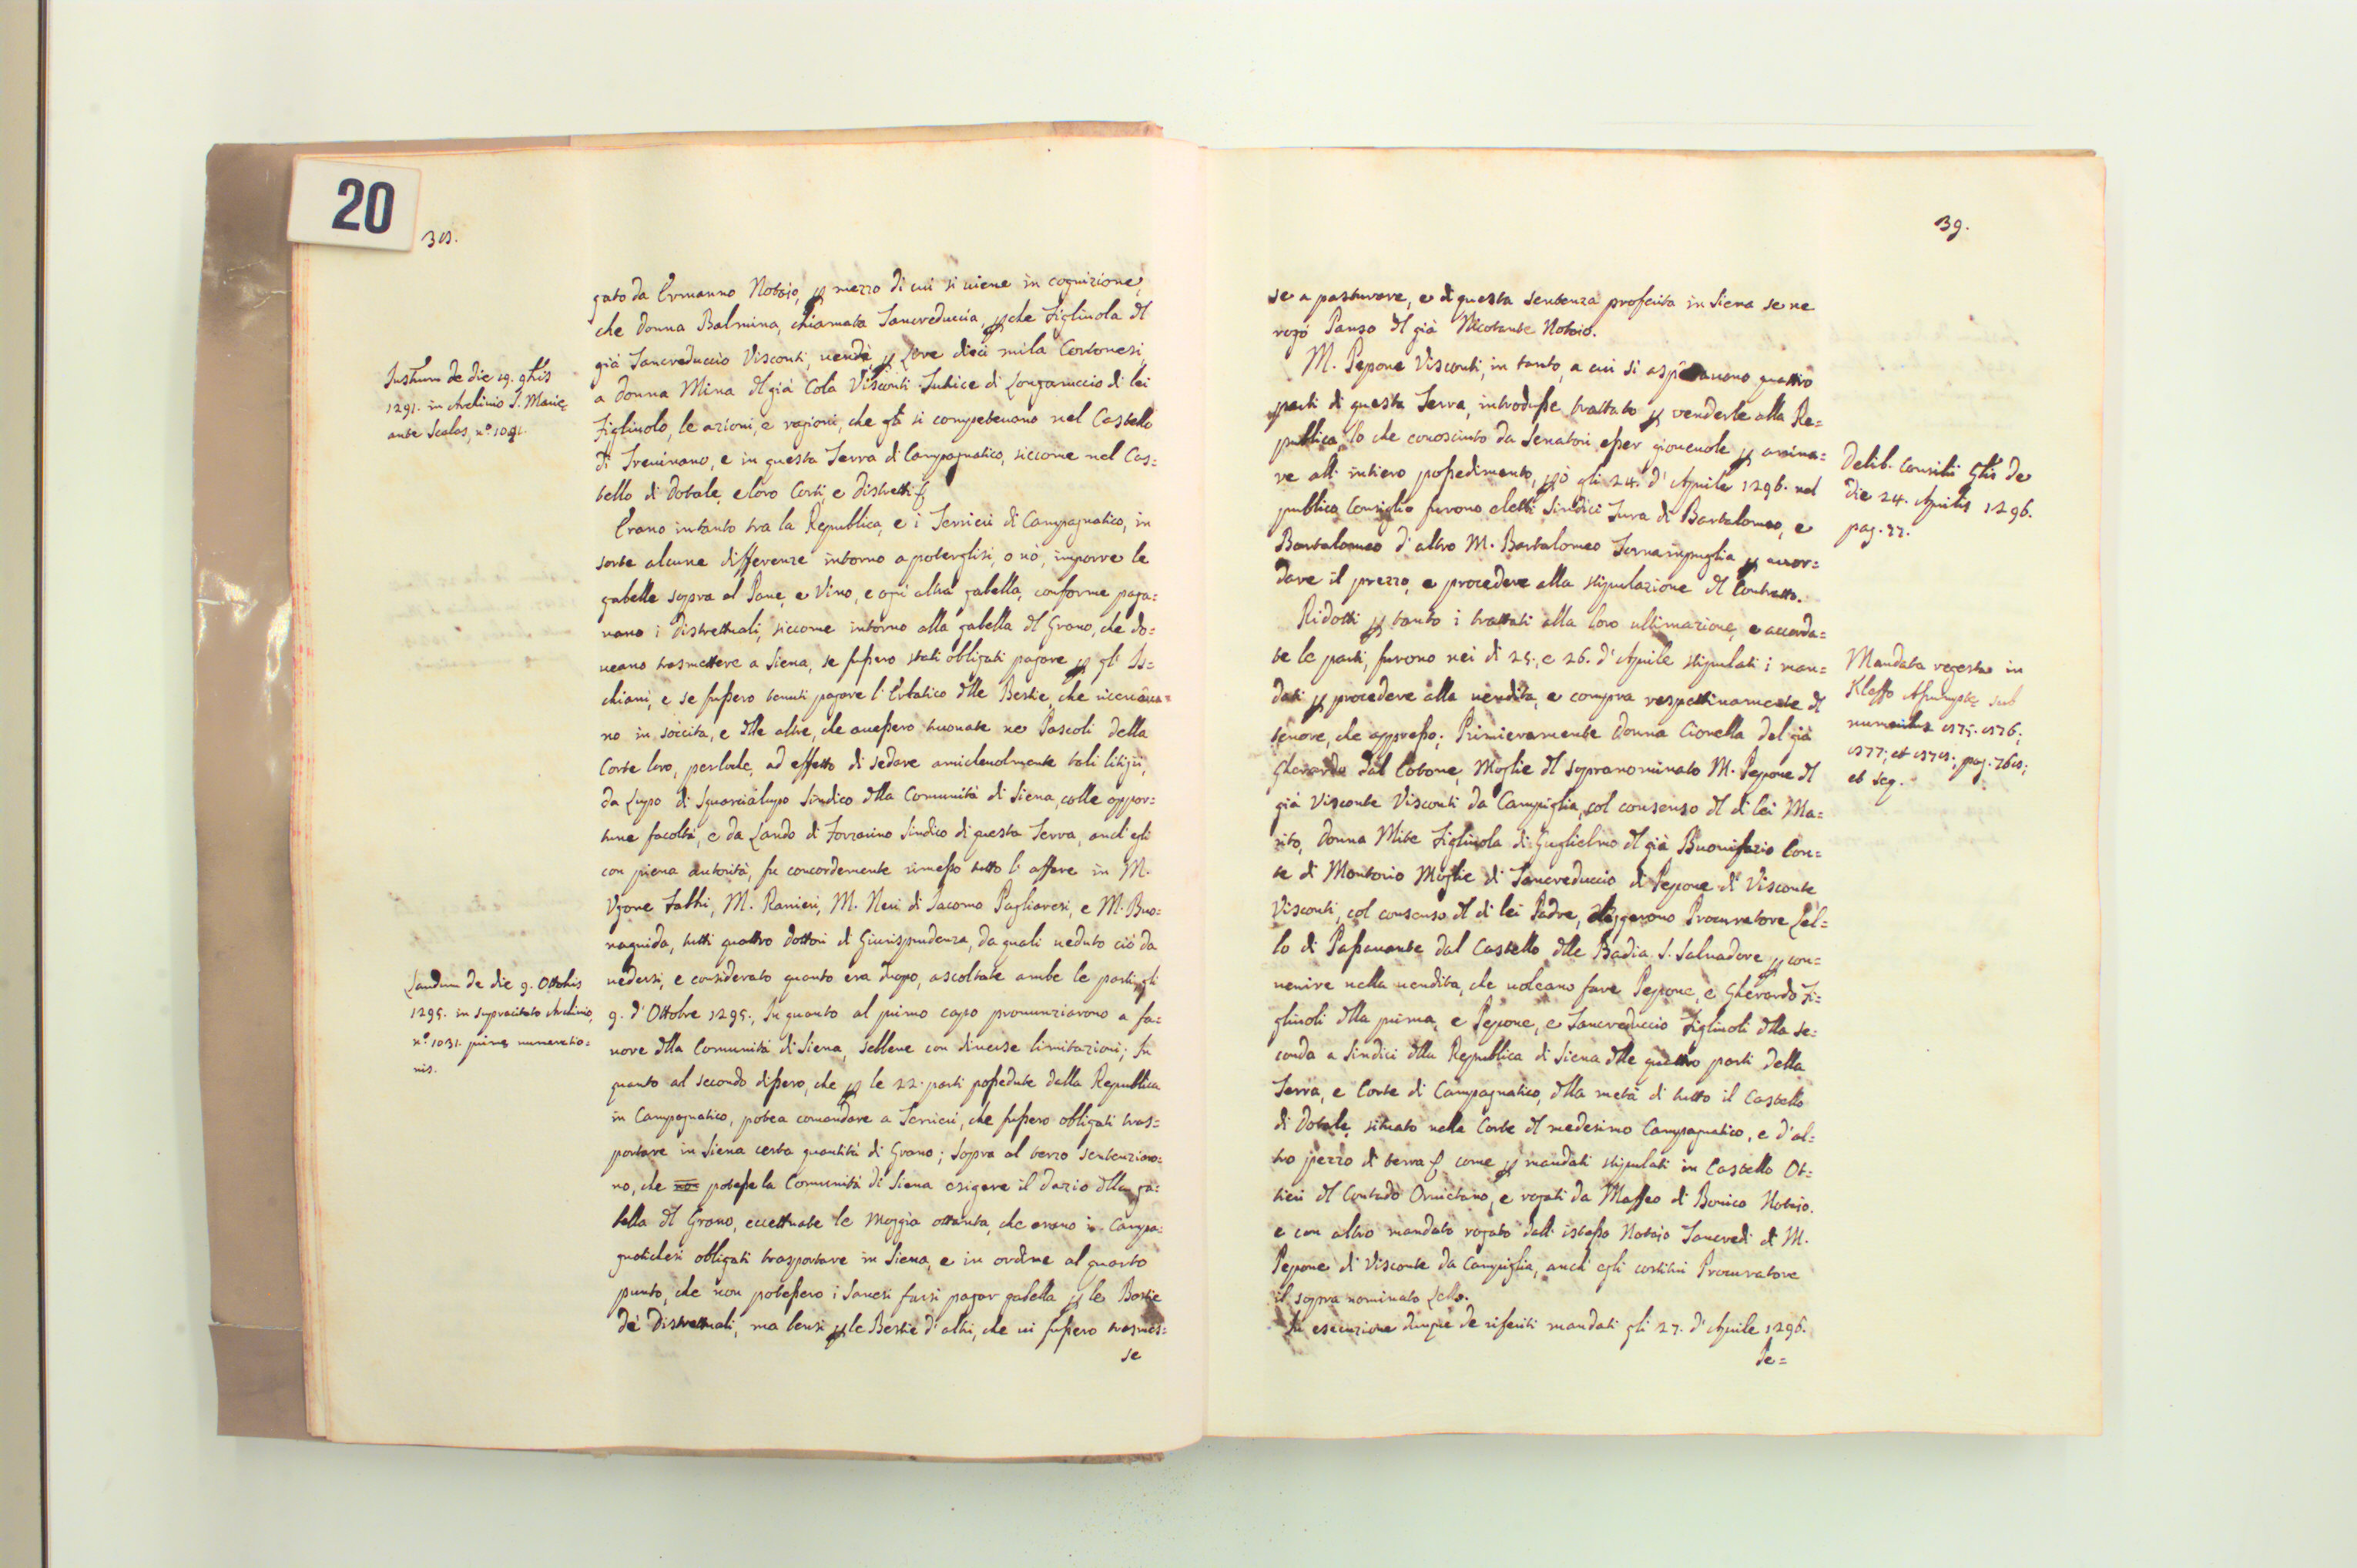 20
38.
gato da Ermanno Notajo, p mezzo di cui si viene in cognizione,
che Donna Balmina, chiamata Tancreduccia, pche Figliuola dl
già Tancreduccio Visconti, vendè p Lire dieci mila Cortonesi
a Donna Mina dl già Cola Visconti Tutrice di Longaruccio di lei
Figliuolo, le azioni, e ragioni, che gli si competevano nel Castello
di Trevinano, e in questa Terra di Campagnatico, siccome nel Cas=
tello di Dotale, e loro Corti, e Distretti
Instrum de die 19. 9bris
1291. in Archivio S. Marię
ante Scalas, n.º 1091.
Erano intanto tra la Republica, e i Terrieri di Campagnatico, in
sorte alcune differenze intorno a poterglisi, o nò, imporre le
gabelle sopra al Pane, e Vino, e ogni altra gabella, conforme paga=
vano i Distrettuali, siccome intorno alla gabella dl Grano, che do=
veano trasmettere a Siena, se fussero stati obligati pagare p gli Is=
chiani, e se fussero tenuti pagare l'Erbatico dlle Bestie, che riceveva=
no in soccita, e dlle altre, che avessero trovate ne Pascoli della
Corte loro, perloche, ad effetto di sedare amichevolmente tali litigii,
da Lupo di Squarcialupo Sindico dlla Comunità di Siena, colle oppor=
tune facoltà, e da Lando di Forzarino Sindico di questa Terra, anch'egli
con piena autorità, fu concordemente rimesso tutto l'affare in M.
Ugone Fabbri, M. Ranieri, M. Neri di Jacomo Pagliaresi, e M. Buo=
naguida, tutti quattro Dottori di Giurisprudenza, da quali veduto ciò da
vedersi, e considerato quanto era duopo, ascoltate ambe le parti gli
9. d'Ottobre 1295., In quanto al primo capo pronunziarono a fa=
vore dlla Comunità di Siena, sebbene con diverse limitazioni; In
quanto al secondo dissero, che p le 22. parti possedute dalla Republica
in Campagnatico, potea comandare a Terrieri, che fussero obligati tras=
portare in Siena certa quantità di Grano; Sopra al terzo sentenziaro=
no, che potesse la Comunità di Siena esigere il Dazio dlla ga=
bella dl Grano, eccettuate le Moggia ottanta, che erano i Campa=
gnatichesi obligati trasportare in Siena, e in ordine al quarto
punto, che non potessero i Sanesi farsi pagar gabella p le Bestie
de' Distrettuali, ma bensi p le Bestie d'altri, che vi fussero trasmes=
se
Laudum de die 9. Ottobris
1295. in supracitato Archivio,
n.º 1031. primę numeratio=
nis.
39.
se a pasturare, e di questa sentenza proferita in Siena se ne
rogò Panzo dl già Ricotante Notaio.
M. Pepone Visconti, in tanto, a cui si aspettavano quattro
parti di questa Terra, introdusse trattato p venderle alla Re=
publica, lo che conosciuto da Senatori esser giovevole p arriva=
re all'intiero possedimento, pciò gli 24. d'Aprile 1296. nel
publico Consiglio furono eletti Sindici Tura di Bartalomeo, e
Bartalomeo d'altro M. Bartalomeo Tornampuglia p accor=
dare il prezzo, e procedere alla stipulazione dl Contratto.
Delib. Consilii Glis de
die 24. Aprilis 1296.
pag. 77.
Ridotti p tanto i trattati alla loro ultimazione, e accorda=
te le parti, furono nei dì 25., e 26. d'Aprile stipulati i man=
dati p procedere alla vendita, e compra respettivamente dl
tenore, che appresso; Primieramente Donna Cionella del già
Gherardo dal Cotone, Moglie dl sopranominato M. Pepone dl
già Visconte Visconti da Campiglia, col consenso dl di lei Ma=
rito, Donna Mite Figliuola di Guglielmo dl già Buonifazio Con=
te di Montorio Moglie di Tancreduccio di Pepone di Visconte
Visconti, col consenso dl di lei Padre, elessero Procuratore Lel=
lo di Passavante dal Castello dlle Badia S. Salvadore p con=
venire nella vendita, che volcano fare Pepone, e Gherardo Fi=
gliuoli dlla prima, e Pepone, e Tancreduccio Figliuoli dlla se=
conda a Sindici dlla Republica di Siena dlle quattro parti della
Terra, e Corte di Campagnatico, dlla metà di tutto il Castello
di Dotale, situato nella Corte dl medesimo Campagnatico, e d'al=
tro pezzo di terra come p mandati stipulati in Castello Ot=
tieri dl Contado Orvietano, e rogati da Maffeo di Bonico Notajo.
e con altro mandato rogato dall'istesso Notajo Tancredi di M.
Pepone di Visconte da Campiglia, anch'egli costituì Procuratore
il sopra nominato Lello.
In esecuzione dunque de riferiti mandati gli 27. d'Aprile 1296.
Se=
Mandata regesta in
Kleffo Assumptę sub
numeris 875. 876;
877; et 878; pag. 768;
et seq.